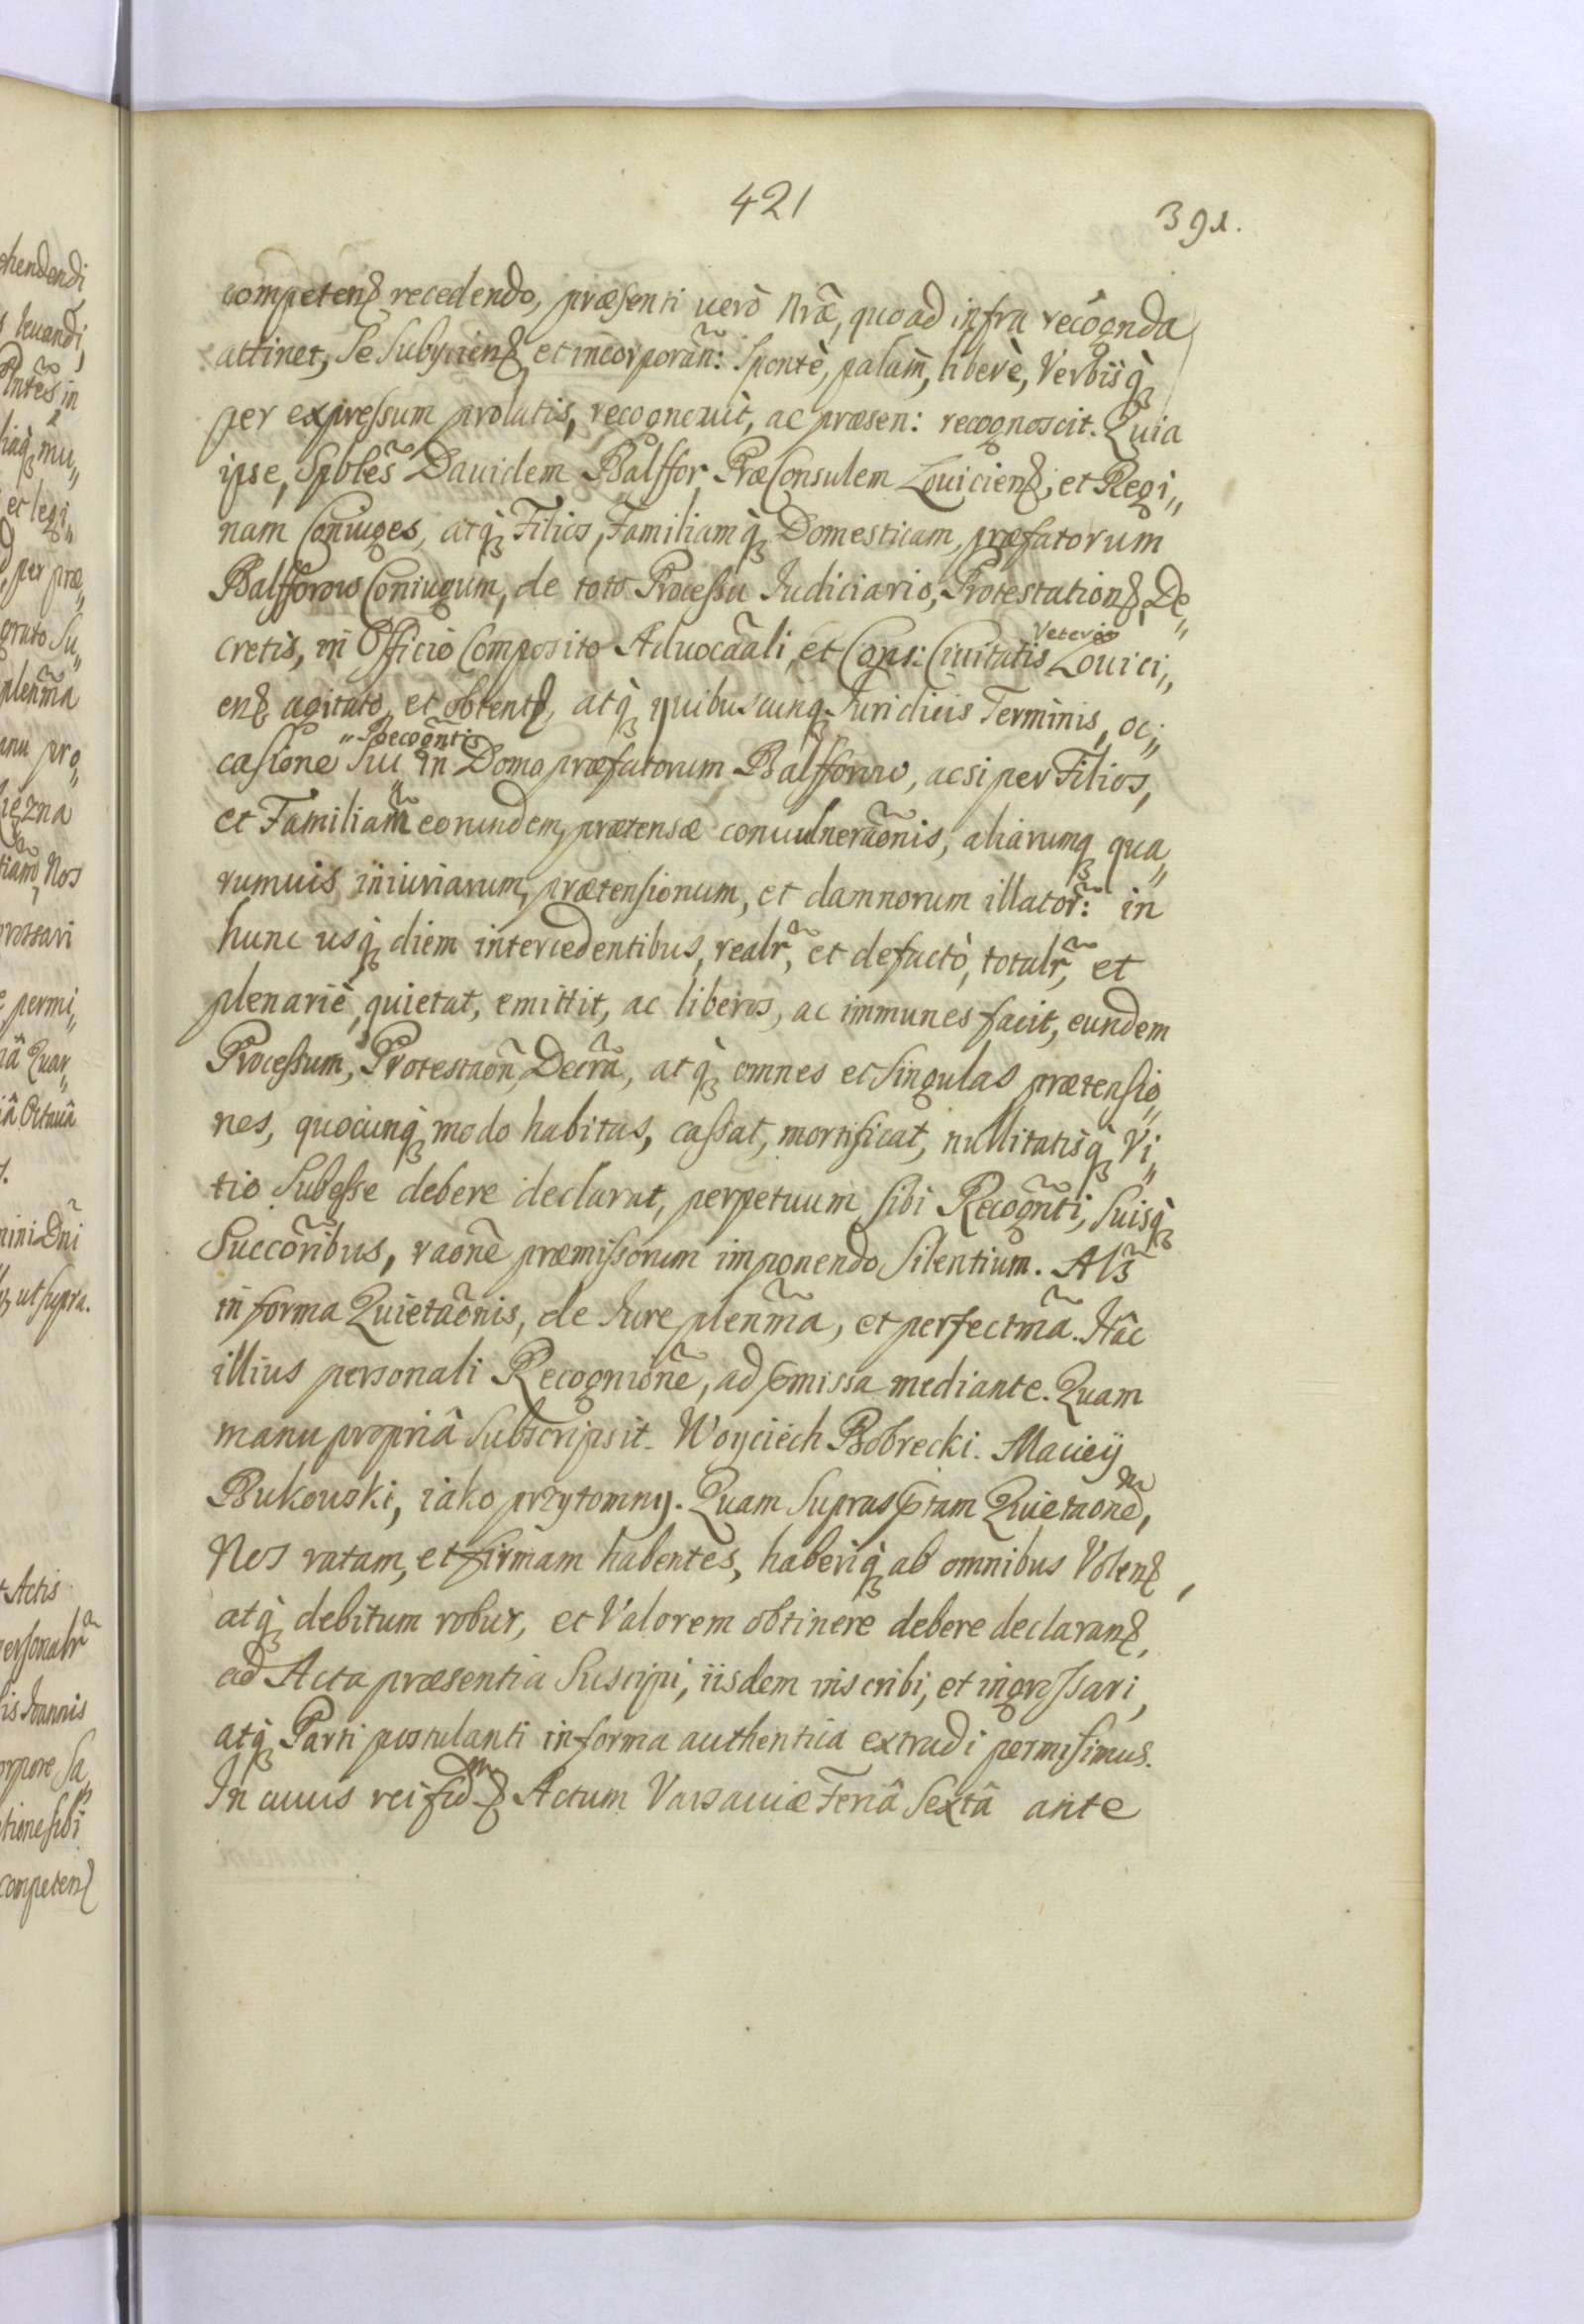 421
391.
competen recedendo, præsenti uerò Nrã, quoad infra recõgnda
attinet, Se Subÿcien et incorporãn: Spontè, palam, liberè, Verbisq
per expressum prolatis, recognouit, ac præsen: recognoscit. Quia
ipse, Spbles Dauidem Balffor Præ Consulem Louicien, et Regi„
nam Coniuges, atq Filios, Familiamq Domesticam, præfatorum
Balfforow Coniugum, de toto Processu Iudiciario, Protestation, De„
cretis, in Officio Composito Aduocãali, et Cons: Ciuitatis Veteris Louici„
en agitato, et obtent, atq quibuscunq Iuridicis Terminis, oc„
casione Sui „Recogñtis in Domo præfatorum Balfforow, ac si per Filios,
et Familiam eorundem, prætensæ conuulnerãonis, aliarumq qua„
rumuis iniuriarum, prætensionum, et damnorum illator: in
hunc usq diem intercedentibus, realr, et defactò, totalr, et
plenariè, quietat, emittit, ac liberos, ac immunes facit, eundem
Processum, Protestaõn, Decrã, atq omnes et singulas prætensio„
nes, quocunq modo habitas, cassat, mortificat, nullitatisq Vi„
tio Subesse debere declarat, perpetuum sibi Recogñti, Suisq
Succõribus, raõne præmissorum imponendo Silentium. Alз
in forma Quietaõnis, de Iure plenmã, et perfectmã. Hâc
illius personali Recogniõne, ad pmissa mediante. Quam
manu propriâ Subscripsit. Woyciech Bobrecki. Macieÿ
Bukouski, iako przytomny. Quam Suprasptam Quietaone,
Nos ratam, et firmam habentes, haberiq ab omnibus Volen,
atq debitum robur, et Valorem obtinere debere declaran,
ad Acta præsentia Suscipi, iisdem inscribi, et ingrossari,
atq Parti postulanti in forma authentica extradi permisimus.
In cuius rei fid Actum Varsauiæ Feriâ Sextâ ante